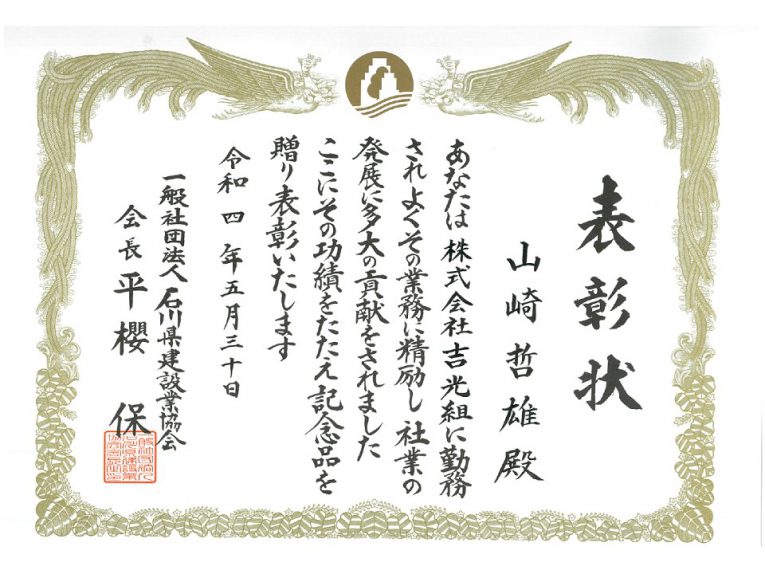 表彰状
山崎哲雄殿
あなたは株式会社吉光組に勤務
されよくその業務に精励し社業の
発展に多大の貢献をされました
ここにその功績をたたえ記念品を
贈り表彰いたします
令和四年五月三十日
一般社団法人石川県建設業協会
会長平櫻保